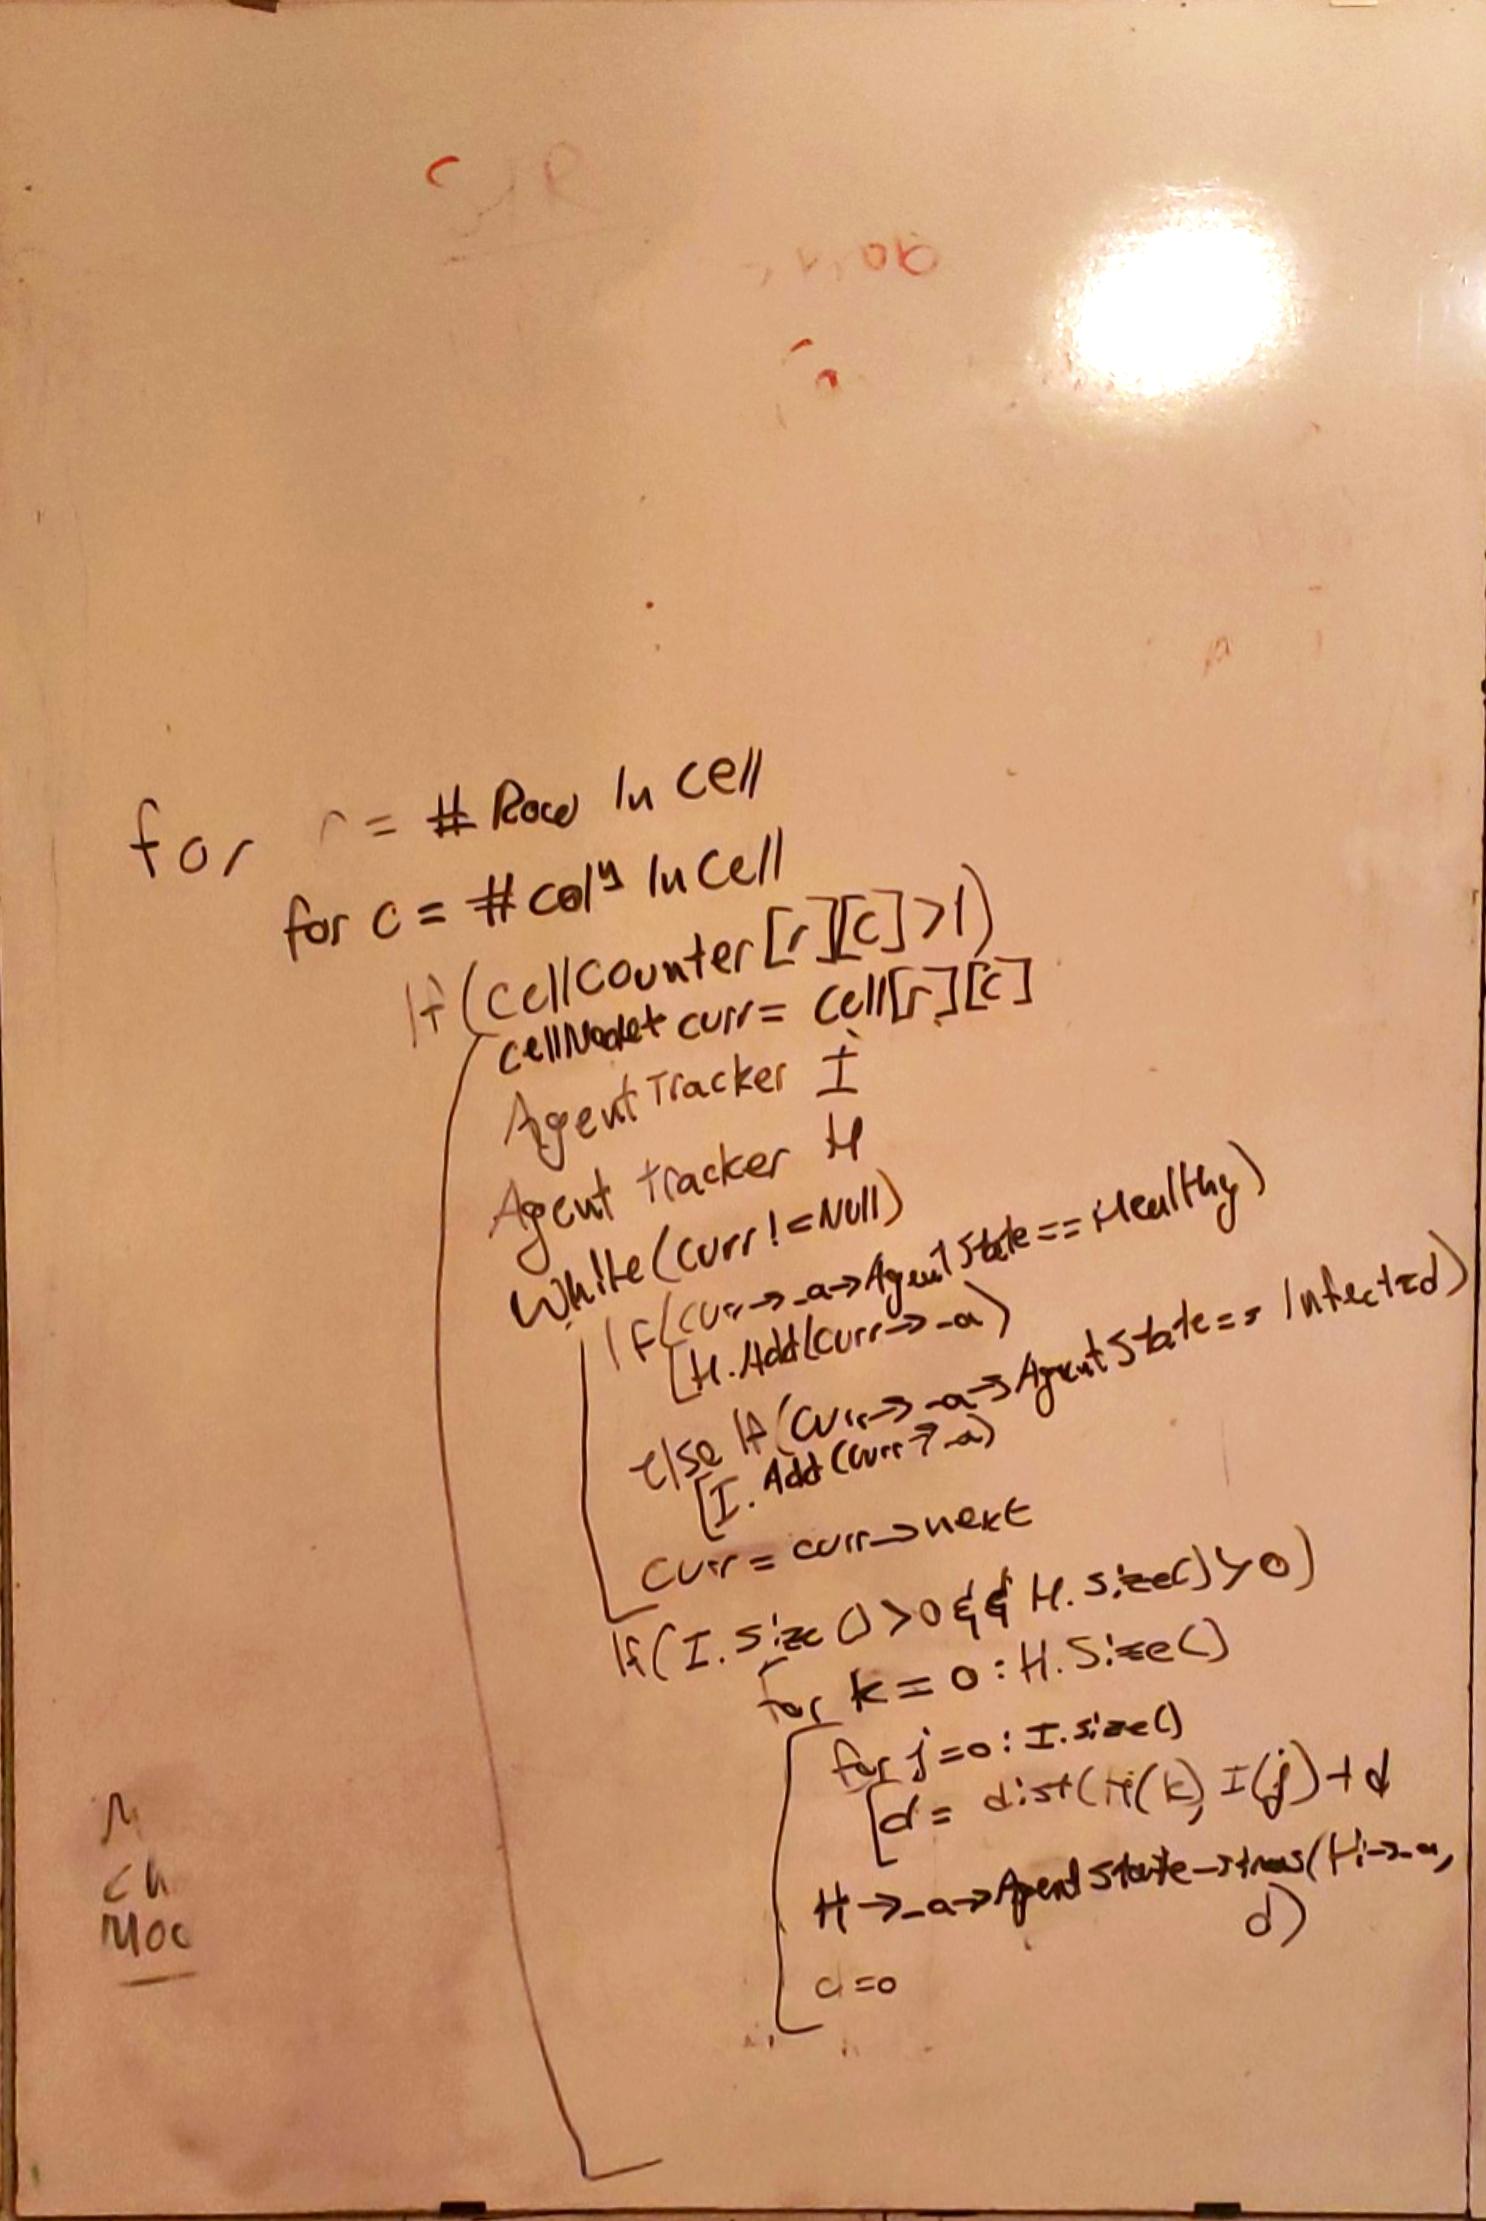 for r = # Row In Cell
for c = # Colˢ In Cell
If (cellCounter[r][c] > 1)
cellNode* curr = Cell[r][c]
Agent Tracker I
Agent Tracker H
While (curr != Null)
If (curr→_a→AgentState == Healthy)
H.Add(curr→_a)
else If (curr→_a→AgentState == Infected)
I.Add(curr→_a)
Curr = curr→next
If (I.Size() > 0 && H.Size() > 0)
for k = 0 : H.Size()
for j = 0 : I.size()
d = dist(H(k), I(j) + d
H→_a→AgentState→trans(Hi→_a,
d)
d = 0